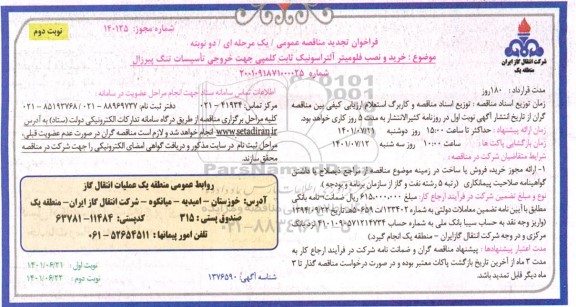 نوبت دوم
شماره مجوز: ۱۴۰۱۳۵
فراخوان تجدید مناقصه عمومی / یک مرحله ای / دو نوبته
موضوع : خرید و نصب فلومیتر آلتراسونیک ثابت کلمپی جهت خروجی تأسیسات تنگ پیرزال
شماره ۲۰۰۱۰۹۱۸۷۱۰۰۰۰۲۵
شرکت انتقال گاز ایران
منطقه یک
مدت قرارداد : ۱۸۰ روز
زمان توزیع اسناد مناقصه : توزیع اسناد مناقصه و کاربرگ استعلام ارزیابی کیفی بین مناقصه
گران از تاریخ انتشار آگهی نوبت اول در روزنامه کثیرالانتشار به مدت ۵ روز کاری خواهد بود.
زمان ارائه پیشنهاد : حداکثر تا ساعت ۱۵:۰۰ روز دوشنبه ۱۴۰۱/۰۷/۱۱
زمان بازگشایی پاکت ها : ساعت ۱۰:۰۰ روز سه شنبه ۱۴۰۱/۰۷/۱۲
شرایط متقاضیان شرکت در مناقصه :
۱- ارائه مجوز خرید، فروش یا ساخت در زمینه موضوع مناقصه از مراجع ذیصلاح یا داشتن
گواهینامه صلاحیت پیمانکاری (رتبه ۵ رشته نفت و گاز از سازمان برنامه و بودجه )
نوع و مبلغ تضمین شرکت در فرآیند ارجاع کار : مبلغ ۶۱۵،۰۰۰،۰۰۰ ریال ضمانت نامه بانکی
مطابق با آیین نامه تضمین معاملات دولتی به شماره ۱۲۳۴۰۲/ت۵۰۶۵۹ه تاریخ ۱۳۹۴/۰۹/۲۲
(واریز وجه نقد به حساب سیبا بانک ملی به شماره حساب
مرکزی و در وجه شرکت انتقال گاز ایران – منطقه یک انجام گیرد.)
مدت اعتبار پیشنهادها : پیشنهاد مناقصه گران و ضمانت نامه شرکت در فرآیند ارجاع کار به
مدت ۳ ماه از آخرین تاریخ بازگشت پاکات معتبر بوده و در صورت درخواست مناقصه گذار تا ۳
ماه دیگر قابل تمدید باشد.
اطلاعات تماس سامانه ستاد جهت انجام مراحل عضویت در سامانه :
مرکز تماس: ۴۱۹۳۴ – ۰۲۱ دفتر ثبت نام: ۸۸۹۶۹۷۳۷ – ۰۲۱ / ۸۵۱۹۳۷۶۸ – ۰۲۱
کلیه مراحل برگزاری مناقصه از طریق درگاه سامانه تدارکات الکترونیکی دولت (ستاد) به آدرس
www.setadiran.ir انجام خواهد شد و لازم است مناقصه گران در صورت عدم عضویت قبلی،
مراحل ثبت نام در سایت مذکور و دریافت گواهی امضای الکترونیکی را جهت شرکت در مناقصه
محقق سازند.
روابط عمومی منطقه یک عملیات انتقال گاز
آدرس: خوزستان – امیدیه – میانکوه – شرکت انتقال گاز ایران- منطقه یک
صندوق پستی : ۳۱۵ کدپستی: ۱۱۴۸۴- ۶۳۷۸۱
تلفن امور پیمانها : ۵۲۶۵۴۵۱۱ – ۰۶۱
شناسه آگهی: ۱۳۷۶۵۹۰
نوبت اول : ۱۴۰۱/۰۶/۲۱
نوبت دوم : ۱۴۰۱/۰۶/۲۲